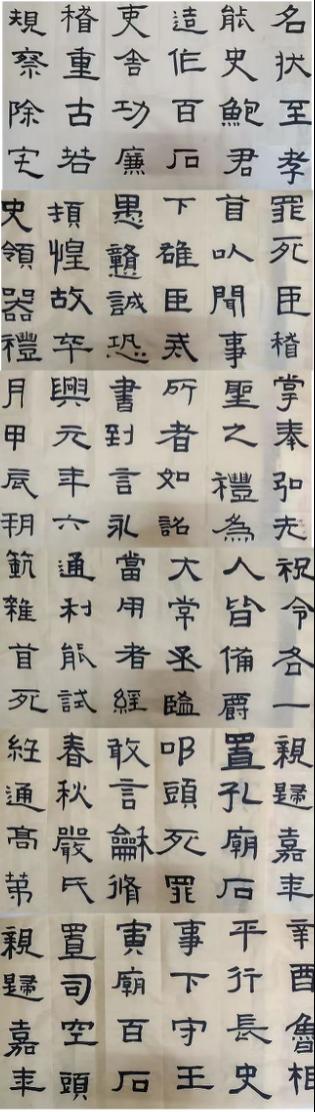 名狀至孝
能史鮑君
造作百石
吏舍功廉
稽重古若
規察除宅
罪死臣稽
首以聞事
下雄臣戒
愚戇誠恐
頓惶故卒
史領器禮
掌奉弘先
聖之禮為
所者如詔
書到言永
興元年六
月甲辰朔
祝令各一
人皆備爵
大常丞臨
當用者經
通利能試
雜首死
親歸嘉年
置孔廟石
叩頭死罪
敢言龢脩
春秋嚴氏
經通高第
辛酉魯相
平行長史
事下守王
寅廟百石
置司空頭
親歸嘉年